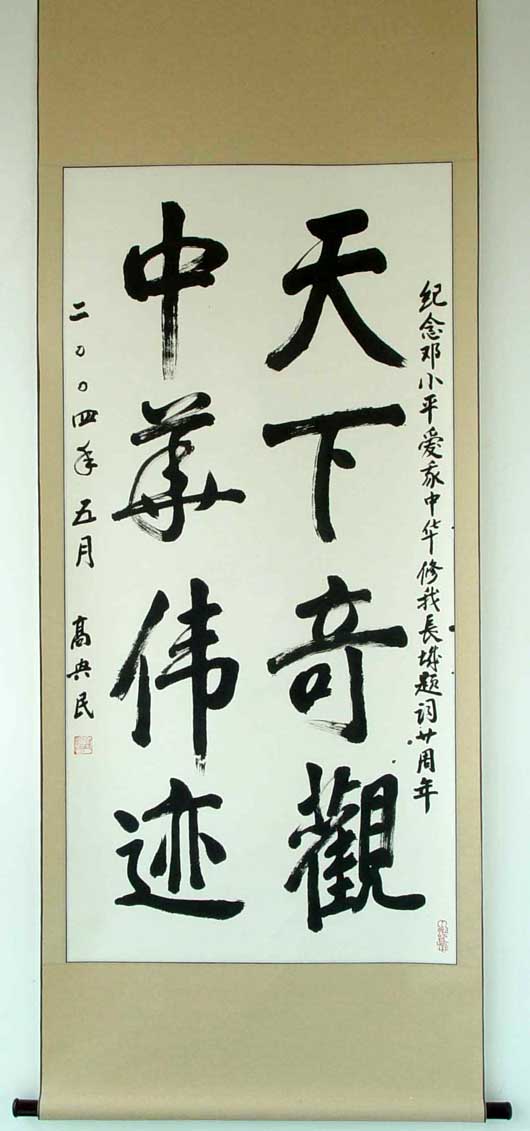 纪念邓小平爱我中华修我長城题词廿周年
天下奇觀
中華伟迹
二〇〇四年五月 高興民